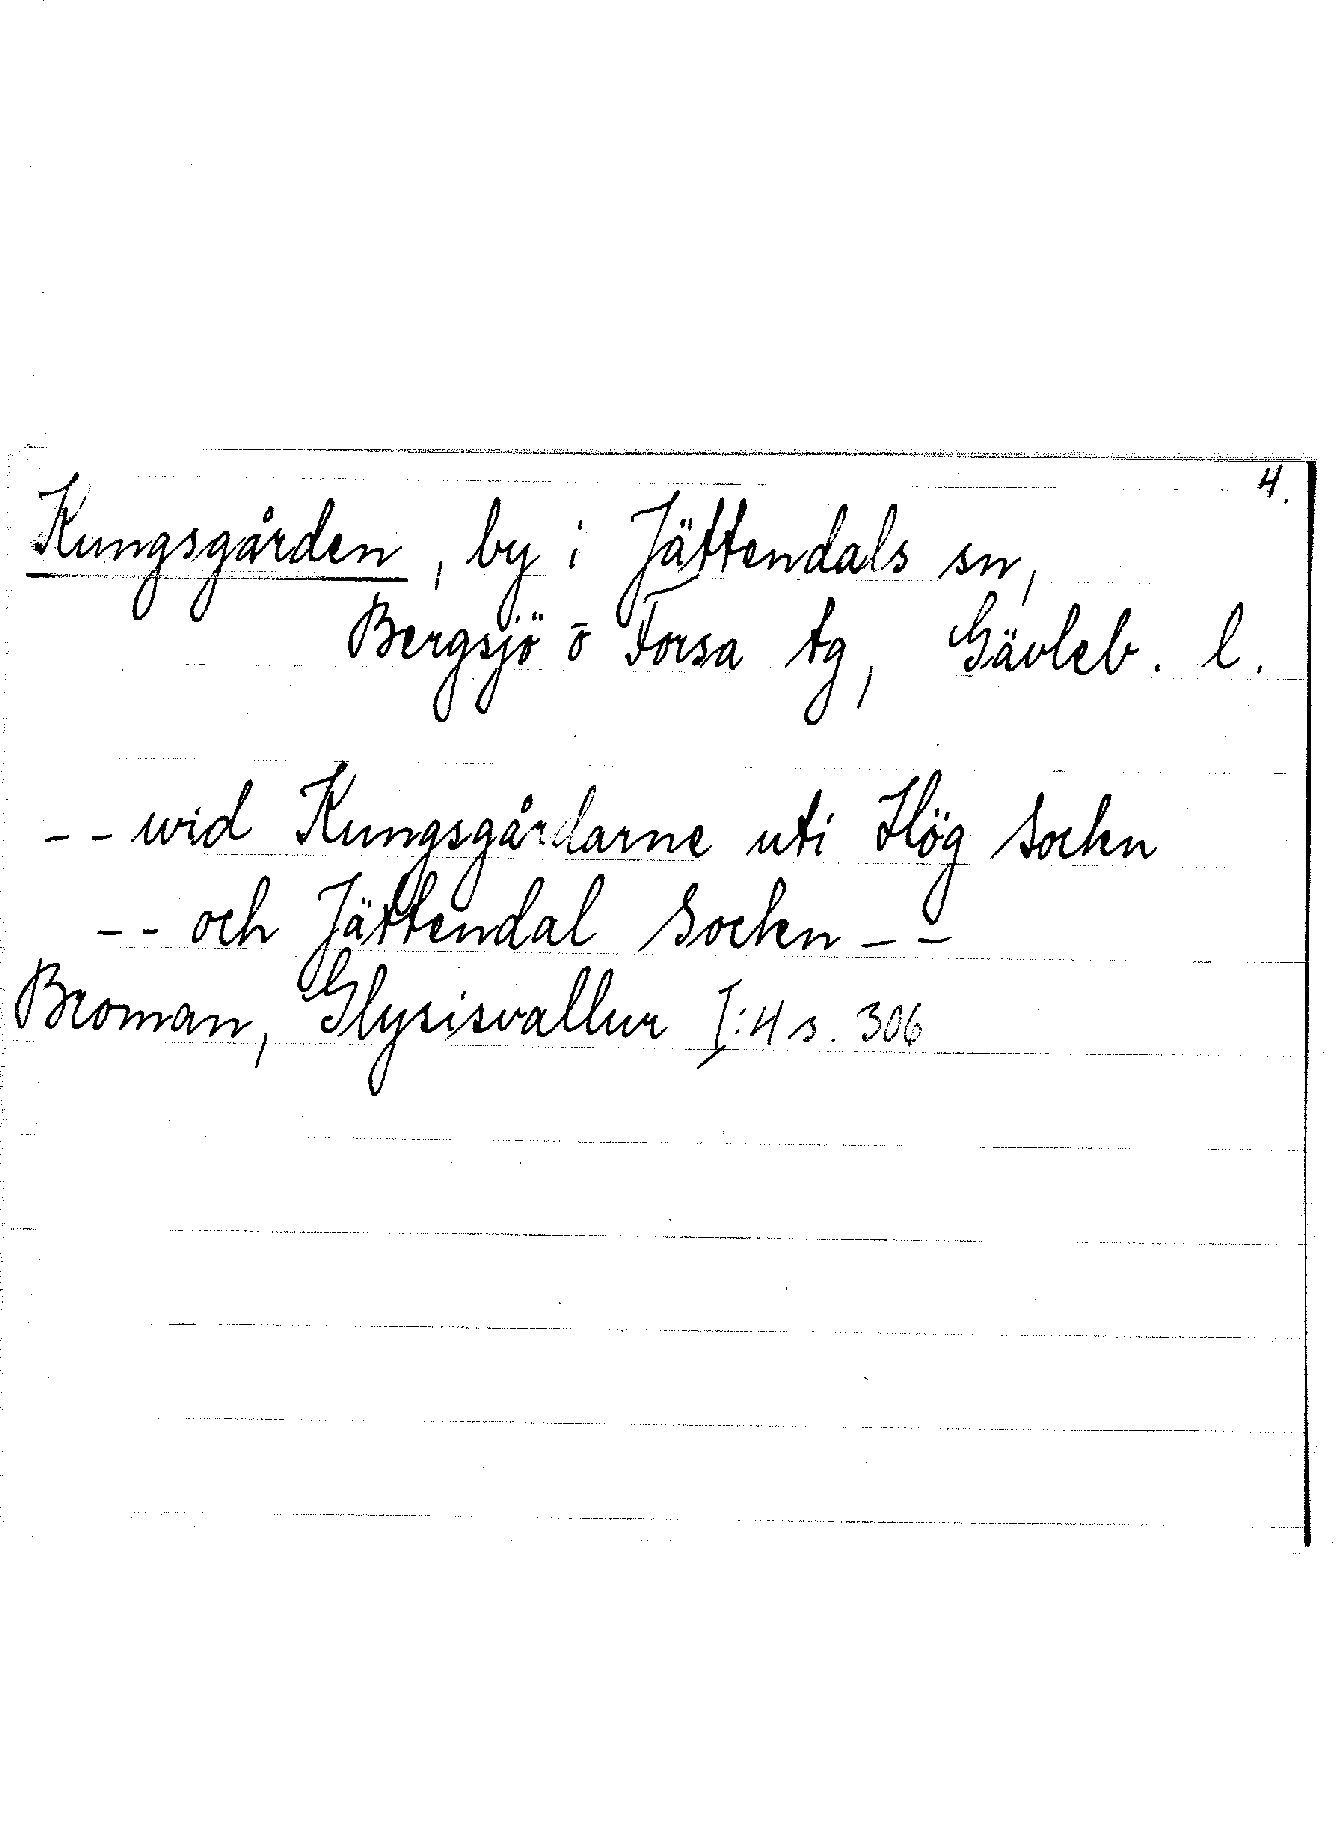 4.
Kungsgården, by i Jättendals sn,
Bergsjö o Forsa tg, Gävleb. l.
-- wid Kungsgårdarne uti Hög Sockn
-- och Jättendal Sockn --
Broman, Glysisvallur I:4 s. 306